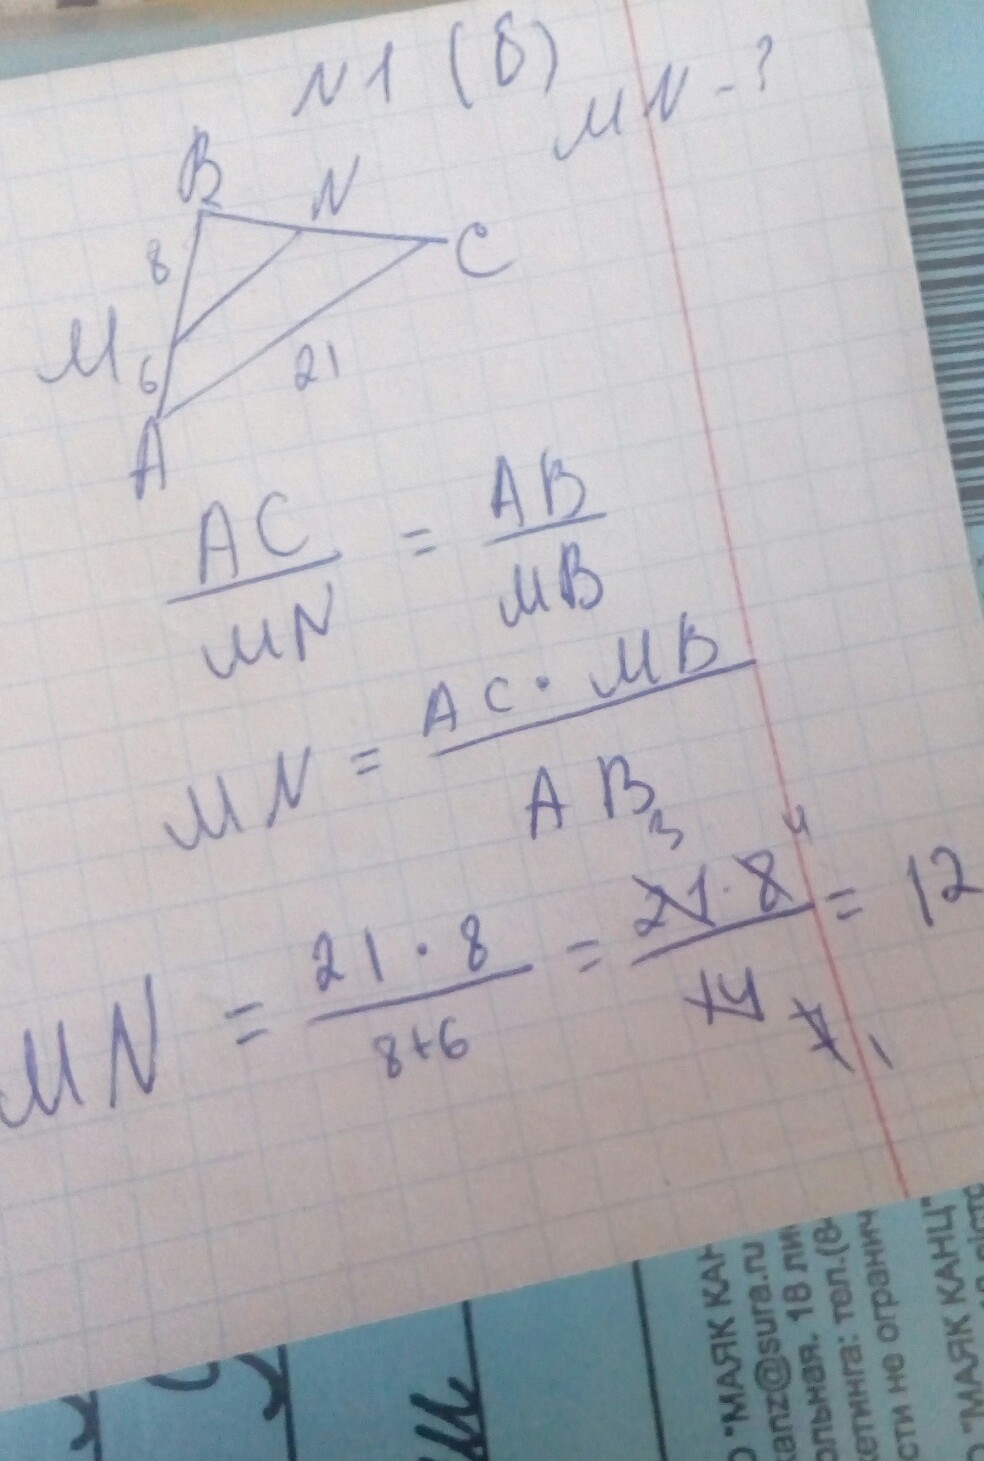 N1 (б)
MN - ?
B
N
8
C
M
6
21
A
AC/MN = AB/MB
MN = AC · MB/AB
MN = 21 · 8/8+6 = 21 · 8/14 = 12
3
4
7 1
О "МАЯК КАН
kanz@sura.ru
ольная. 18 ли
кетинга: тел.(8
сти не огранич
О "МАЯК КАНЦ"